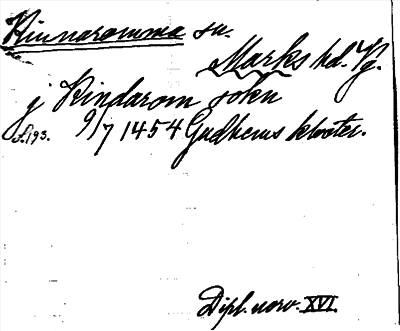 Kinnaromma sn.
Marks hd. Vg.
j Kindarom sokn
s. 193. 9/7 1454 Gudhems kloster.
Dipl. norv. XVI.